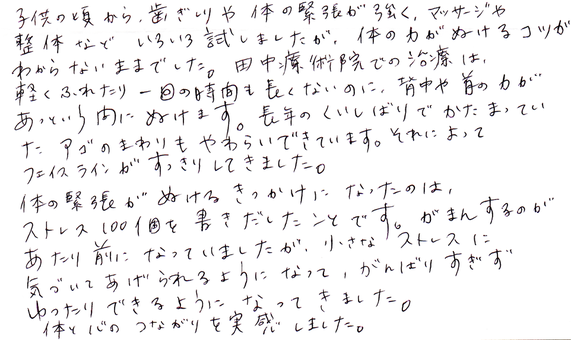 子供の頃から、歯ぎしりや体の緊張が強く、マッサージや
整体など いろいろ試しましたが、体の力がぬけるコツが
わからないままでした。田中療術院での治療は、
軽くふれたり一回の時間も長くないのに、背中や首の力が
あっという間にぬけます。長年のくいしばりでかたまってい
た アゴのまわりもやわらいできています。それによって
フェイスラインがすっきりしてきました。
体の緊張がぬけるきっかけになったのは、
ストレス100個を書きだしたことです。がまんするのが
あたり前になっていましたが、小さなストレスに
気づいてあげられるようになって、がんばりすぎず
ゆったりできるようになってきました。
体と心のつながりを実感しました。